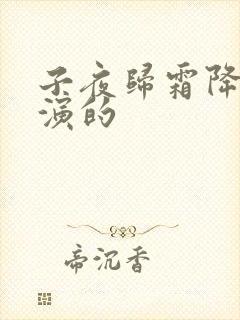 子夜歸霜降
演的
帝沉香